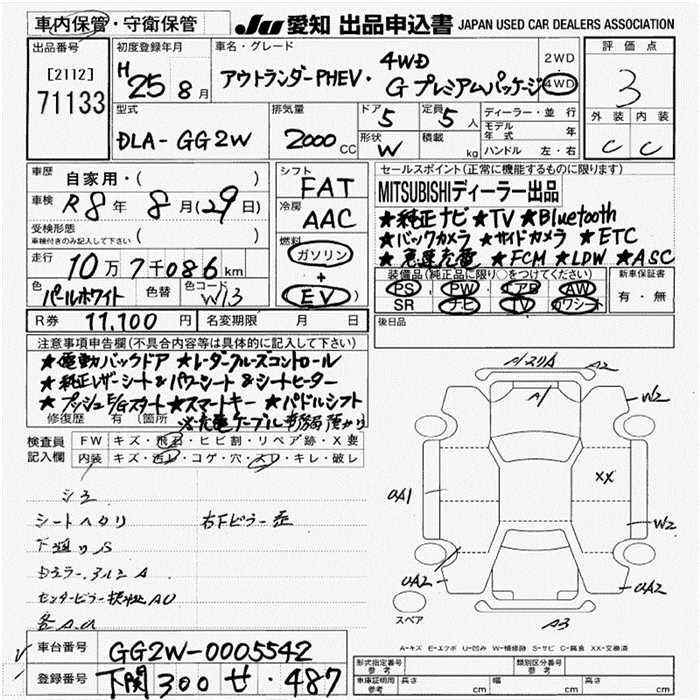 車内保管・守衛保管
JU 愛知 出品申込書 JAPAN USED CAR DEALERS ASSOCIATION
出品番号
[2112]
71133
初度登録年月
H25 8月
車名・グレード
アウトランダーPHEV・
4WD
Gプレミアムパッケージ
2WD
4WD
評価点
3
外装 内装
C C
型式
DLA-GG2W
排気量
2000 CC
ドア 5
形状 W
定員 5人
積載 kg
ディーラー・並行
モデル年式 年
ハンドル 左・右
車歴
自家用・( )
車検
R8年 8月(29日)
受検形態
車検付きのみ記入して下さい ( )
走行
10万7千086km
色
パールホワイト
色替
色コード
W13
シフト
FAT
冷房
AAC
燃料
ガソリン
+
EV
セールスポイント(正常に機能するものに限ります)
MITSUBISHIディーラー出品
★純正ナビ ★TV ★Bluetooth
★バックカメラ ★サイドカメラ ★ETC
★急速充電 ★FCM ★LDW ★ASC
装備品(純正品に限り○をつけてください)
PS PW エアB AW
SR ナビ TV カワシート
新車保証書
有・無
R券 11,100円
名変期限 月 日
後日品
注意事項申告欄(不具合内容等は具体的に記入して下さい)
★電動バックドア ★レーダークルーズコントロール
★純正レザーシート&パワーシート&シートヒーター
★プッシュE/Gスタート★スマートキー ★パドルシフト
修復歴 有 (箇所
※充電ケーブル事務局預かり
検査員記入欄
FW キズ・飛石・ヒビ割・リペア跡・X要
内装 キズ・汚レ・コゲ・穴・スレ・キレ・破レ
シートヘタリ 右Fピラー歪
下廻りS
センターピラー
各A.U
A1 A2
A1
W2
UA1
XX
W2
UA2
UA2
A3
スペア
A-キズ E-エクボ U-凹み W-補修跡 S-サビ C-腐食 XX-交換済
車台番号
GG2W-0005542
登録番号
下関 300 せ・487
形式指定番号 参考
類別区分番号 参考
車庫証明用 参考
長さ cm
幅 cm
高さ cm